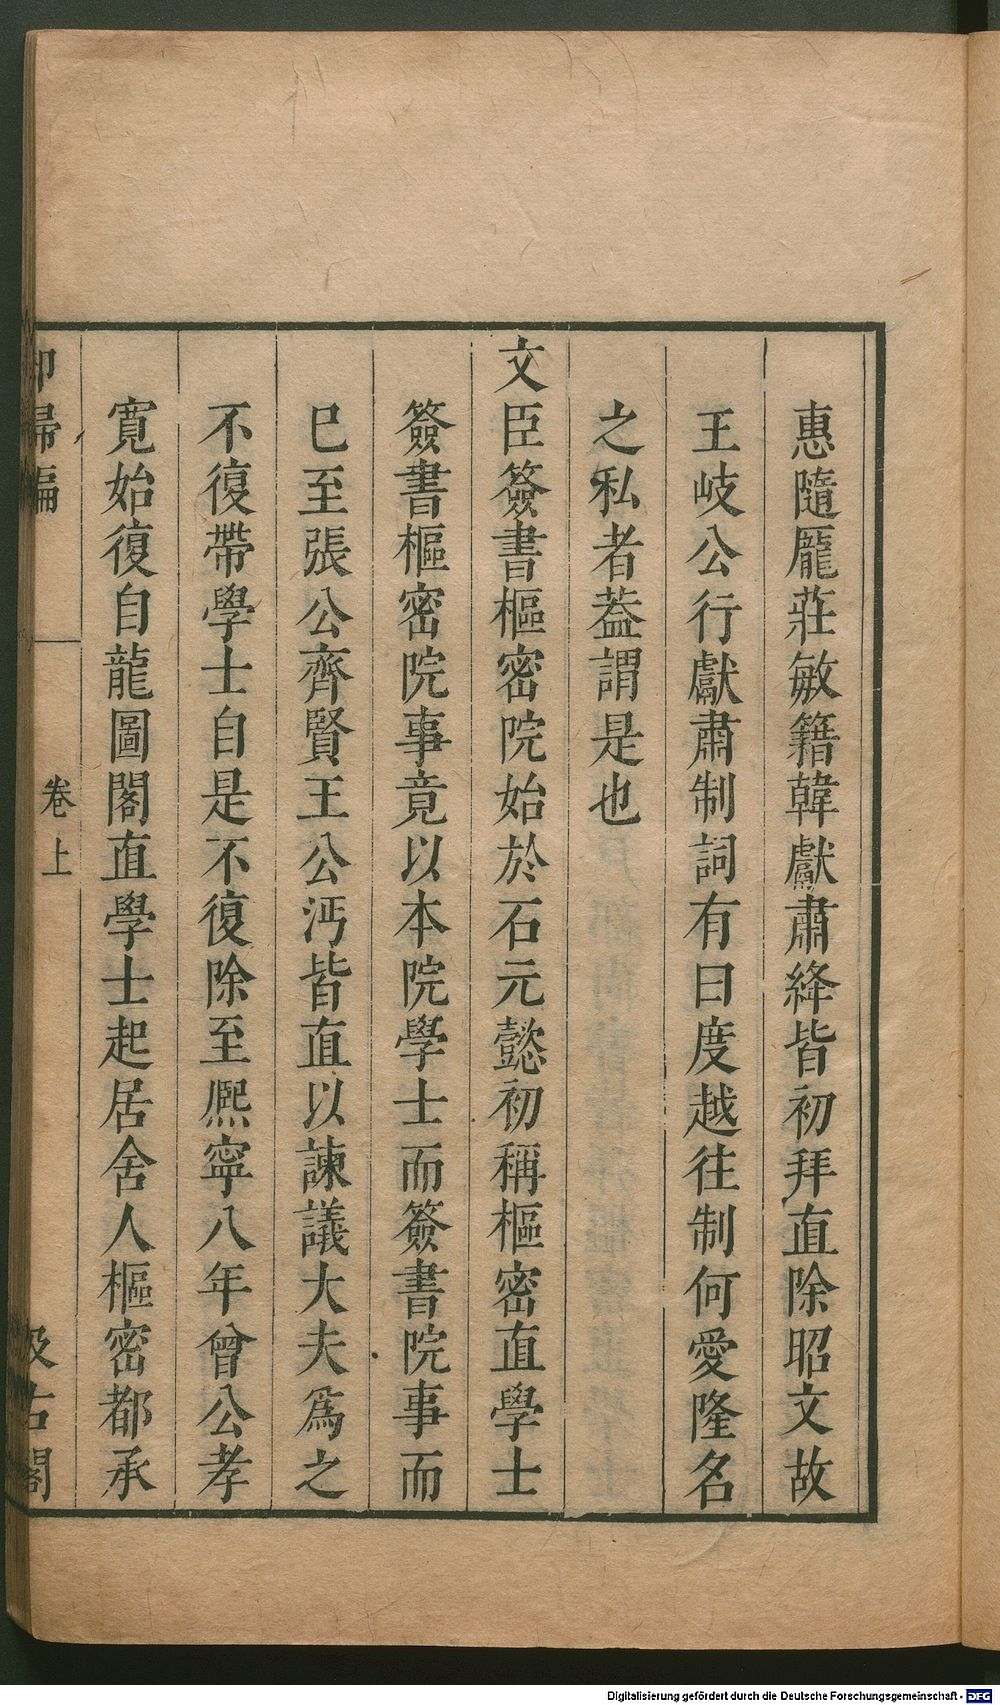 惠隨龐莊敏籍韓獻肅絳皆初拜直除昭文故
王岐公行獻肅制詞有曰度越往制何愛隆名
之私者葢謂是也
文臣簽書樞密院始於石元懿初稱樞密直學士
簽書樞密院事竟以本院學士而簽書院事而
巳至張公齊賢王公沔皆直以諫議大夫爲之
不復帶學士自是不復除至熈寧八年曾公孝
寛始復自龍圖閣直學士起居舍人樞密都承
却掃編
卷上
汲古閣
Digitalisierung gefördert durch die Deutsche Forschungsgemeinschaft - DFG